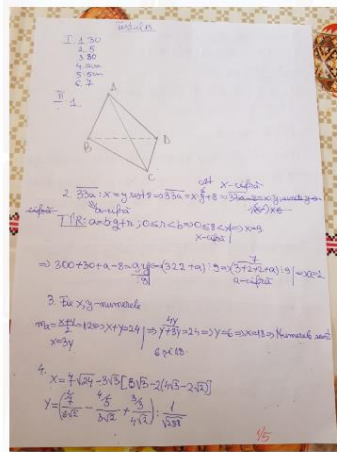 Testul 13
I. 1. 30
2. 5
3. 30
4. 2cm
5. 5cm
6. 7
II. 1.
A
B
D
C
cât x-cifră
2. 33a : x = y rest 8 ⇒ 33a = x·y + 8 ⇒
a-cifră
TÎR: a = b·q + r, 0 ≤ r < b ⇒ 0 ≤ 8 < x ⇒ x = 9
x-cifră
⇒ 300+30+a-8 = 9y ⇒ (322+a) : 9 ⇒ (3+2+2+a) : 9 ⇒ a = 2
a-cifră
3. Fie x, y - numerele
ma = x+y/2 = 12 ⇒ x+y = 24 ⇒ y+3y = 24 ⇒ y = 6 ⇒ x = 18 ⇒ Numerele sunt
x = 3y
4y
6 și 18.
4.
x = 7√24 - 3√3 [5√3 - 2(4√3 - 2√2)]
y = (7/6√2 - 4/3√2 + 3/4√2) : 1/√288
1/5